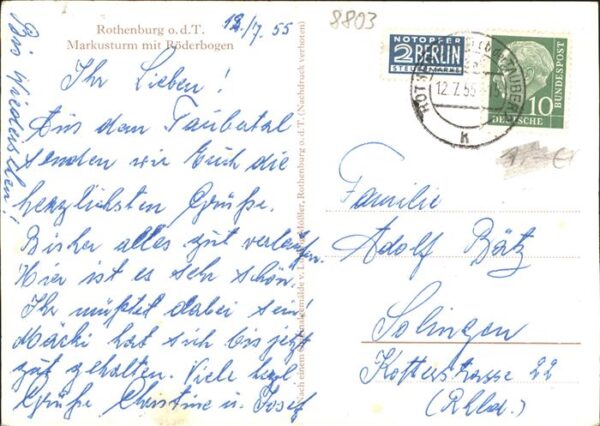 Rothenburg o.d.T.
Markusturm mit Röderbogen
12./7.55
8803
Ihr Lieben!
Aus dem Taubertal
senden wir Euch die
herzlichsten Grüße.
Bisher alles gut verlaufen.
Hier ist es sehr schön.
Ihr müßtet dabei sein!
Mäcki hat sich bis jetzt
gut gehalten. Viele herzl
Grüße Christine u. Josef
Bis Wiedersehen!
(Nachdruck verboten)
Rothenburg o.d.T.
NOTOPFER
2 BERLIN
STEUERMARKE
12.7.55
K
10
DEUTSCHE
BUNDESPOST
1,- €
Familie
Adolf Bätz
Solingen
Kotterstrasse 22
(Rhld.)